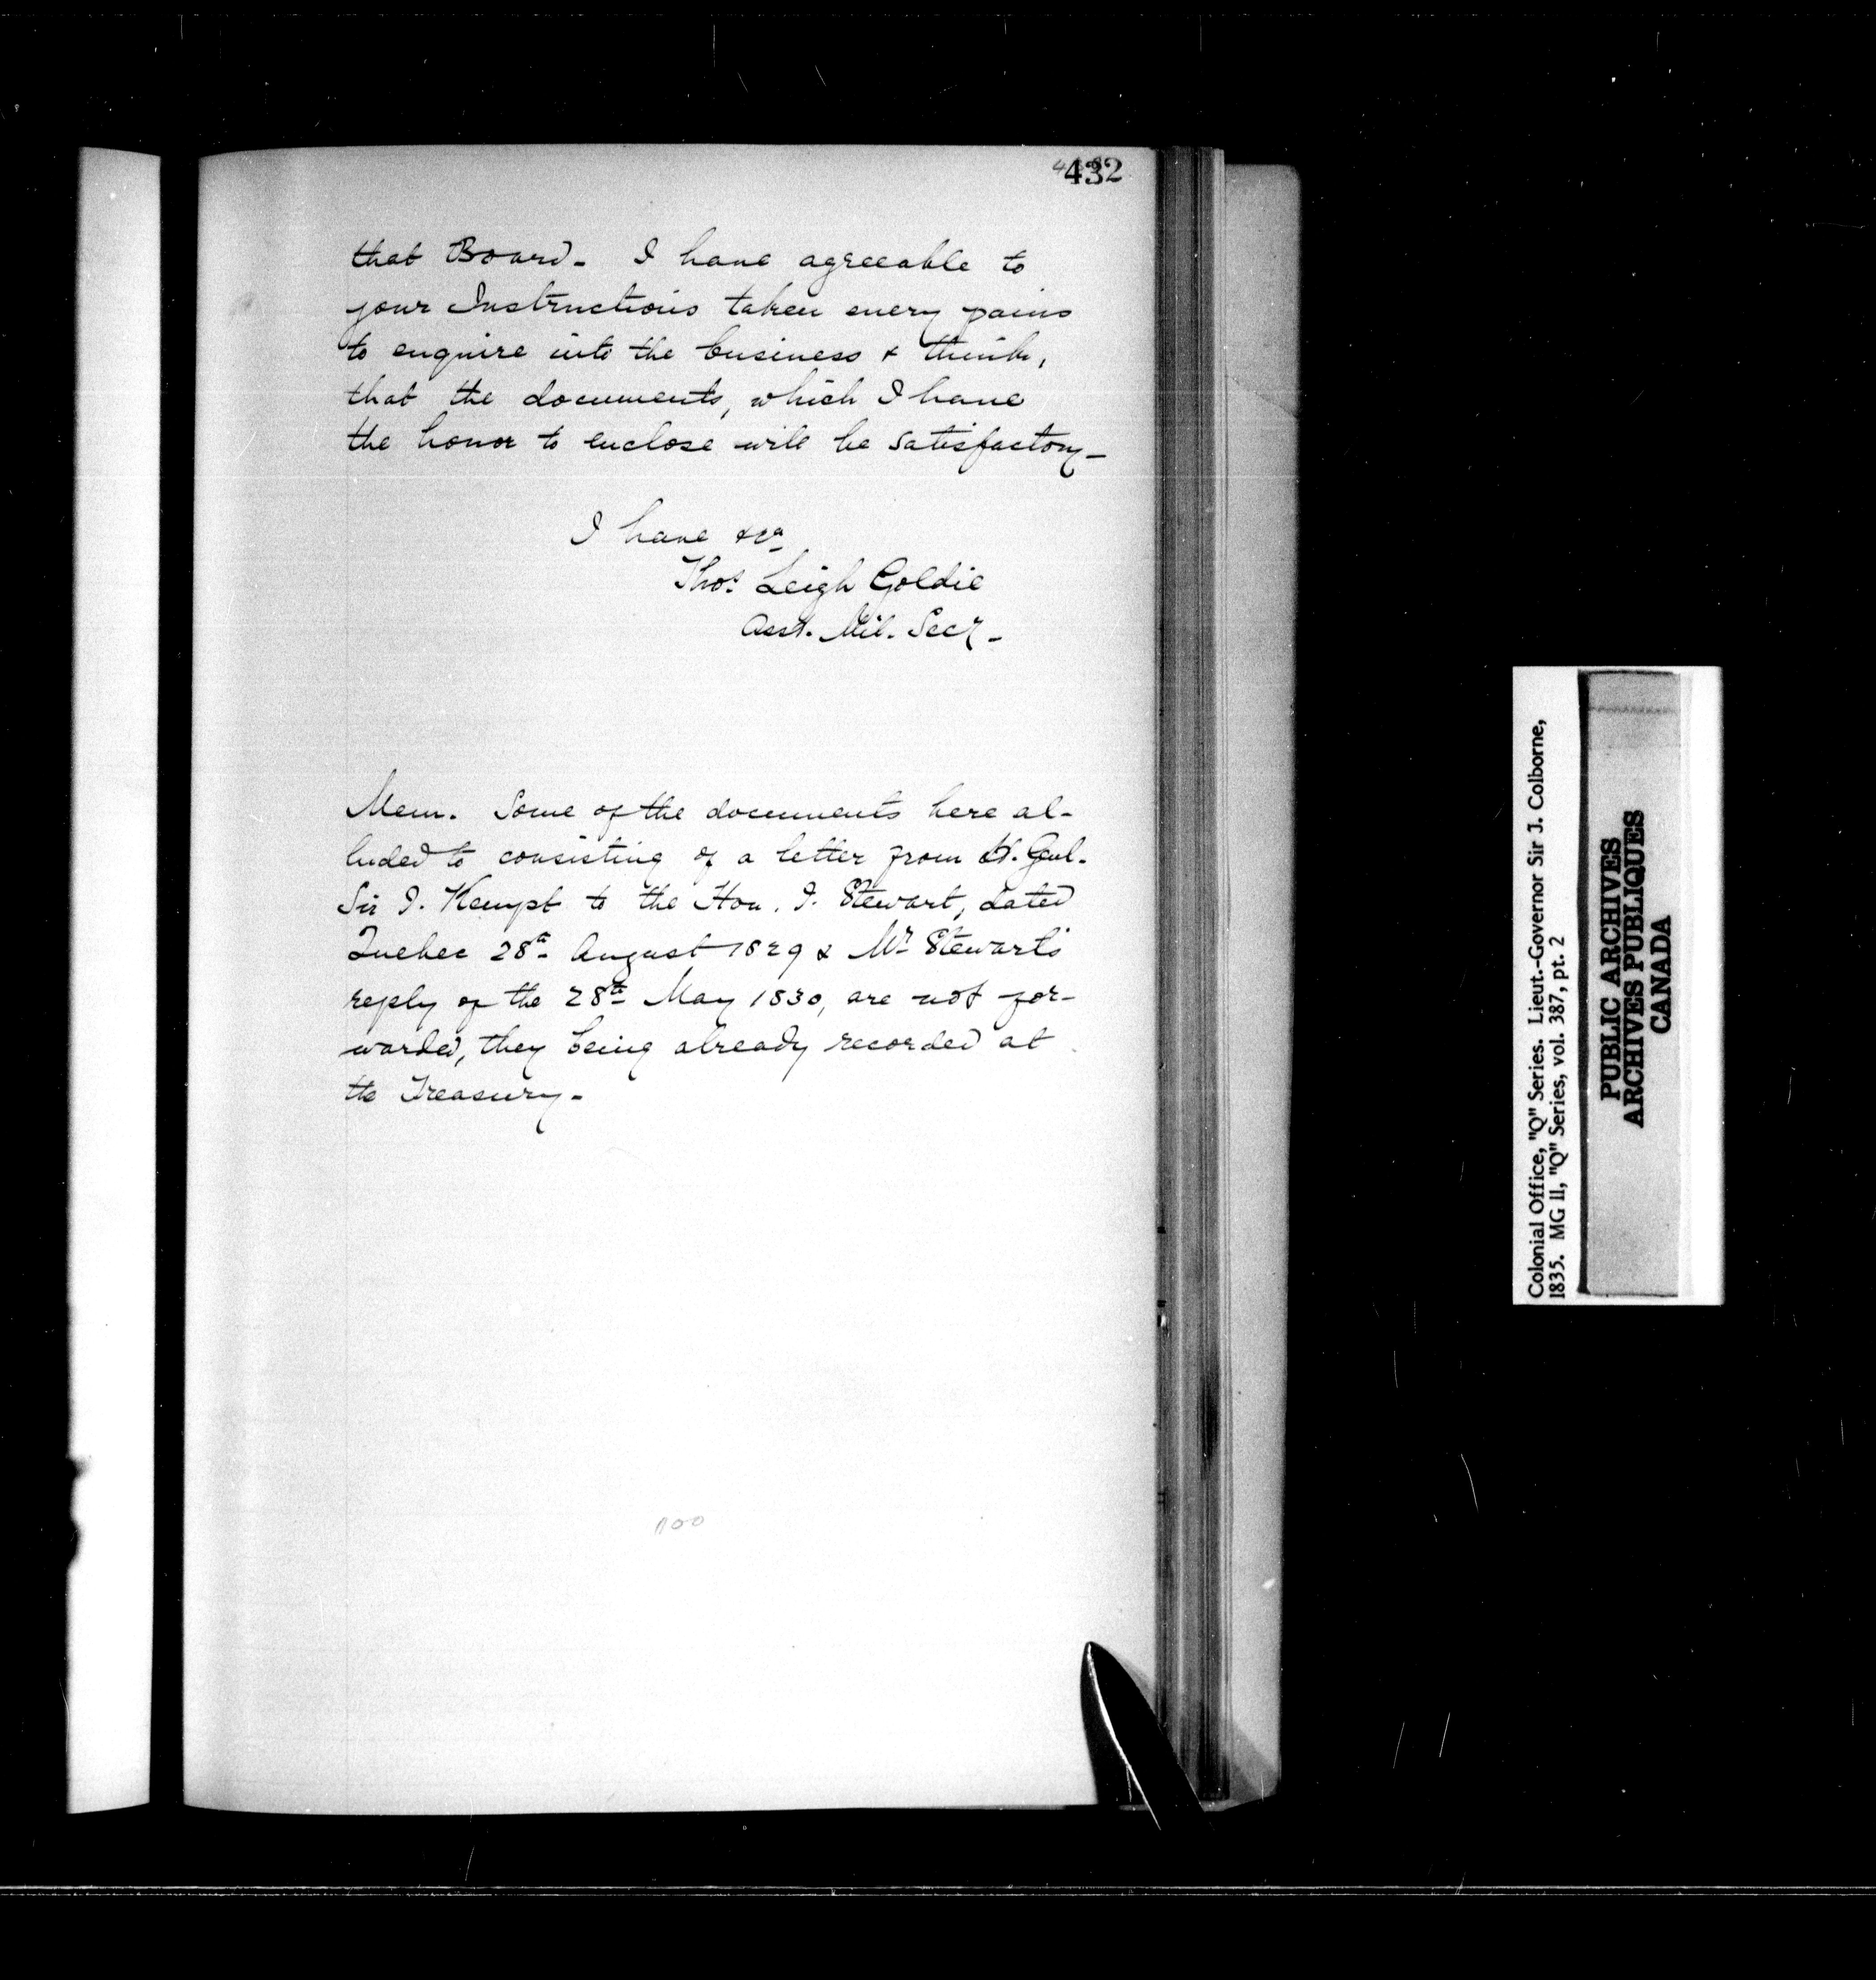 432
that Board - I have agreeable to
your Instructions taken every pains
to enquire into the business & think,
that the documents, which I have
the honor to enclose will be satisfactory -
I have &ca
Thos. Leigh Goldie
Asst. Mil. Secy -
Mem. Some of the documents here al-
luded to consisting of a letter from Lt. Genl.
Sir J. Kempt to the Hon. J. Stewart, dated
Quebec 28th August 1829 & Mr Stewart's
reply of the 28th May 1830, are not for-
warded, they being already recorded at
the Treasury -
Colonial Office, "Q" Series. Lieut.-Governor Sir J. Colborne,
1835. MG 11, "Q" Series, vol. 387, pt. 2
PUBLIC ARCHIVES
ARCHIVES PUBLIQUES
CANADA